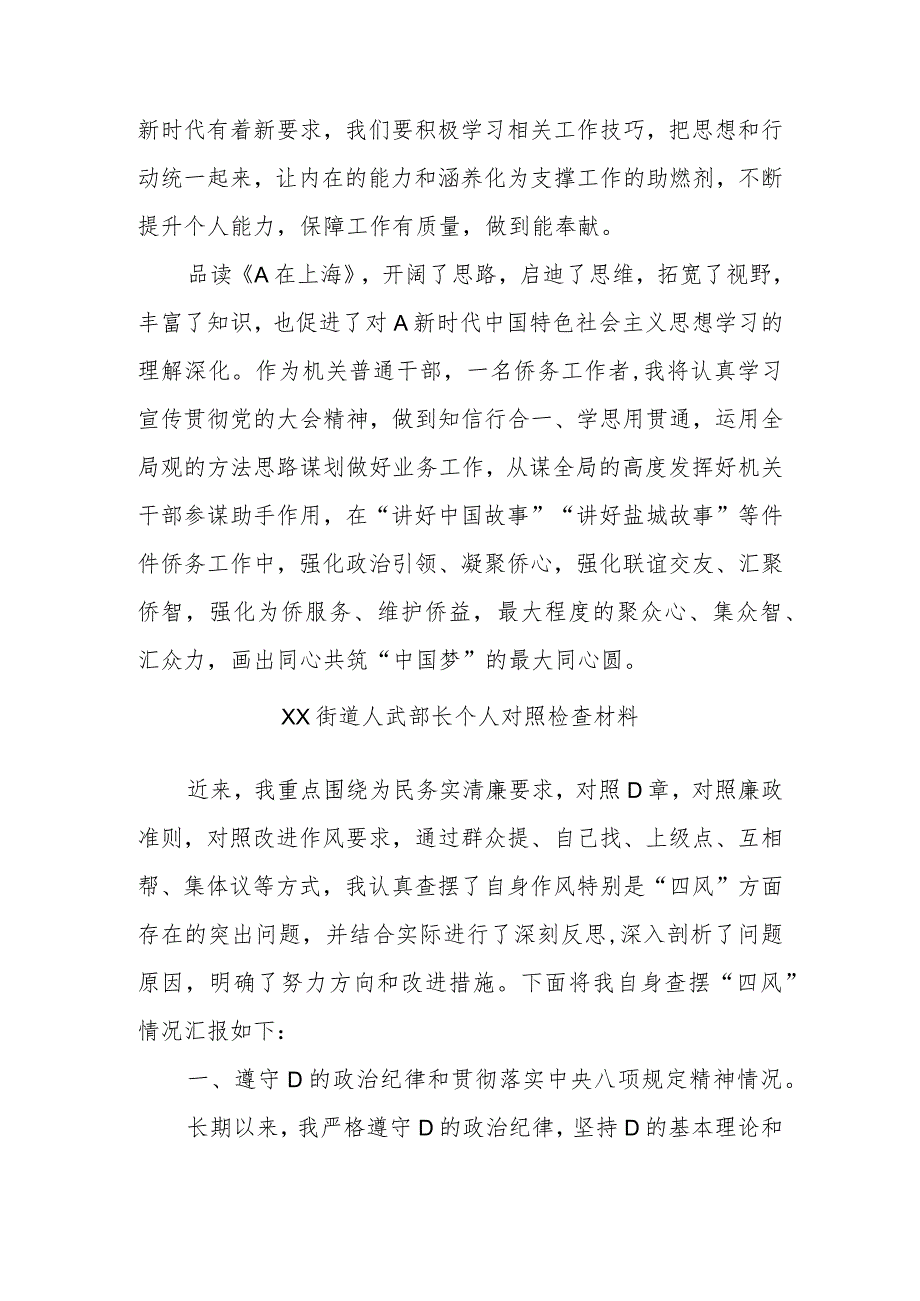 新时代有着新要求，我们要积极学习相关工作技巧，把思想和行
动统一起来，让内在的能力和涵养化为支撑工作的助燃剂，不断
提升个人能力，保障工作有质量，做到能奉献。
品读《A在上海》，开阔了思路，启迪了思维，拓宽了视野，
丰富了知识，也促进了对A新时代中国特色社会主义思想学习的
理解深化。作为机关普通干部，一名侨务工作者,我将认真学习
宣传贯彻党的大会精神，做到知信行合一、学思用贯通，运用全
局观的方法思路谋划做好业务工作，从谋全局的高度发挥好机关
干部参谋助手作用，在“讲好中国故事”“讲好盐城故事”等件
件侨务工作中，强化政治引领、凝聚侨心，强化联谊交友、汇聚
侨智，强化为侨服务、维护侨益，最大程度的聚众心、集众智、
汇众力，画出同心共筑“中国梦”的最大同心圆。
XX街道人武部长个人对照检查材料
近来，我重点围绕为民务实清廉要求，对照D章，对照廉政
准则，对照改进作风要求，通过群众提、自己找、上级点、互相
帮、集体议等方式，我认真查摆了自身作风特别是“四风”方面
存在的突出问题，并结合实际进行了深刻反思,深入剖析了问题
原因，明确了努力方向和改进措施。下面将我自身查摆“四风”
情况汇报如下：
一、遵守D的政治纪律和贯彻落实中央八项规定精神情况。
长期以来，我严格遵守D的政治纪律，坚持D的基本理论和